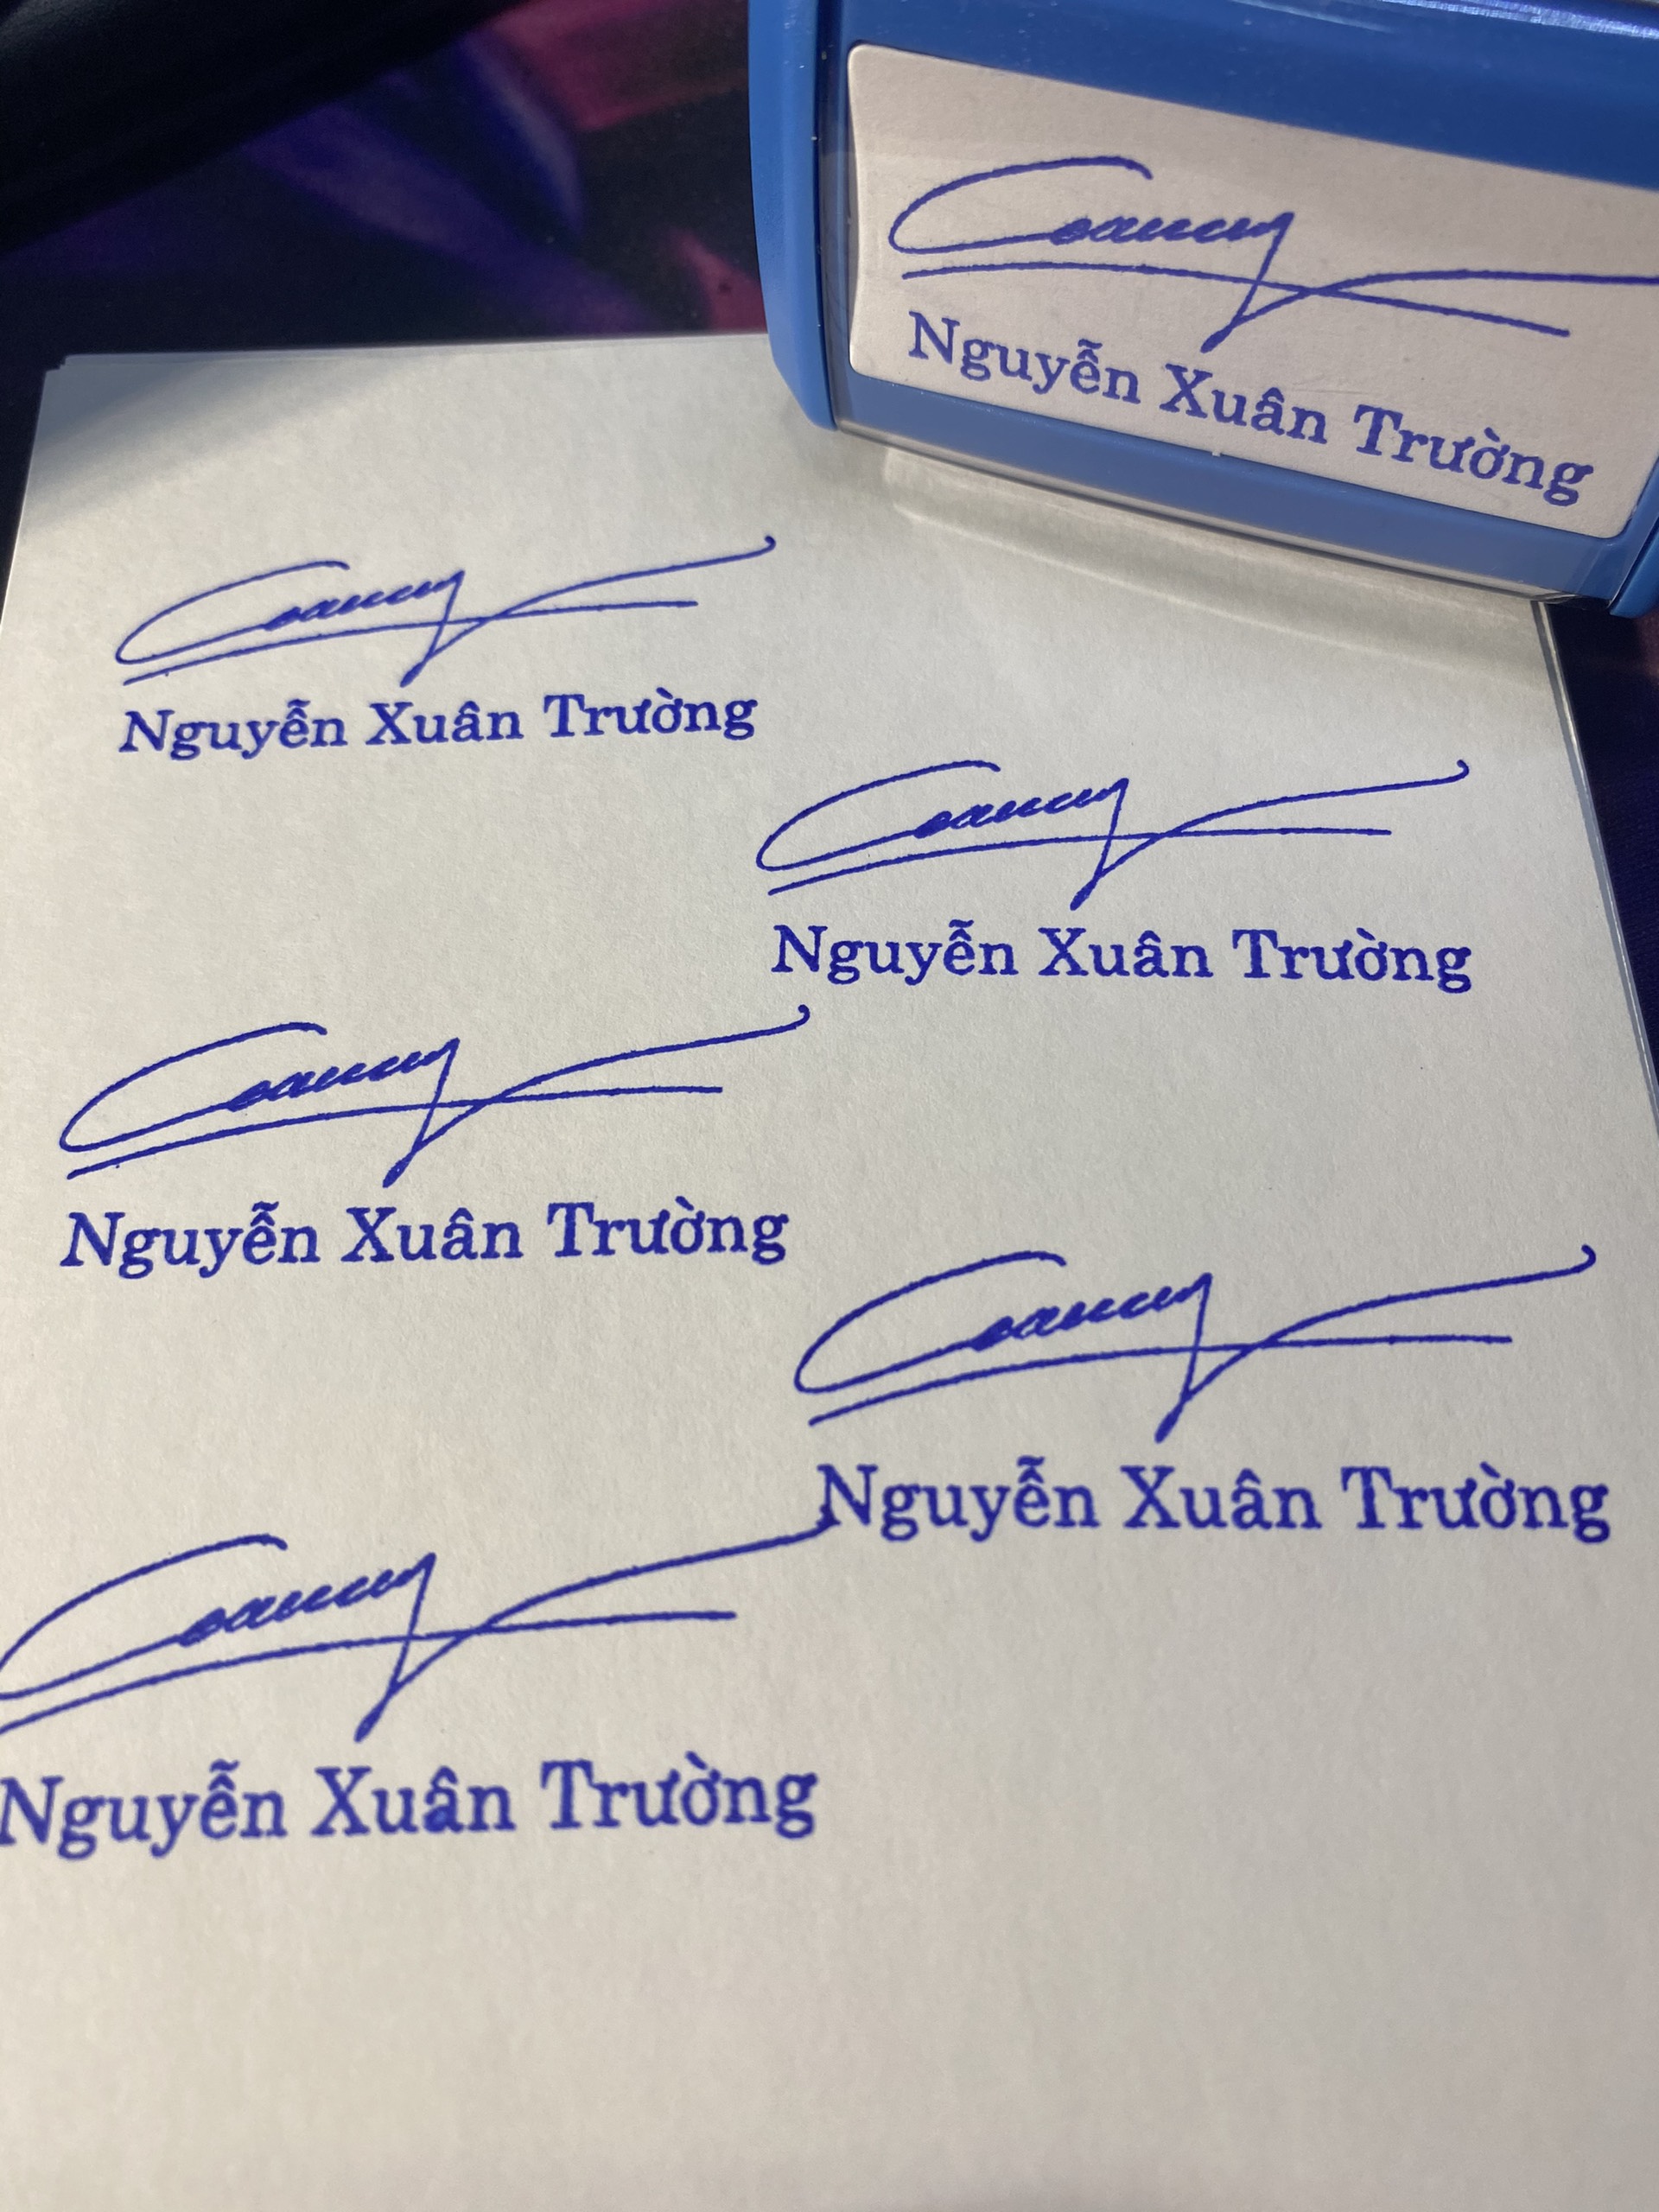 Nguyễn Xuân Trường
Nguyễn Xuân Trường
Nguyễn Xuân Trường
Nguyễn Xuân Trường
Nguyễn Xuân Trường
Nguyễn Xuân Trường